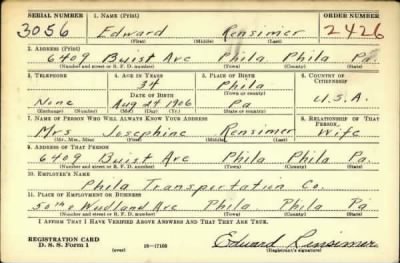 SERIAL NUMBER 1. NAME (Print) ORDER NUMBER
3056 Edward Rensimer 2426
(First) (Middle) (Last)
2. ADDRESS (Print)
6409 Buist Ave Phila Phila Pa.
(Number and street or R. F. D. number) (Town) (County) (State)
3. TELEPHONE 4. AGE IN YEARS 5. PLACE OF BIRTH 6. COUNTRY OF CITIZENSHIP
34 Phila
DATE OF BIRTH (Town or county)
None Aug 24 1906 Pa U.S.A.
(Exchange) (Number) (Mo.) (Day) (Yr.) (State or country)
7. NAME OF PERSON WHO WILL ALWAYS KNOW YOUR ADDRESS 8. RELATIONSHIP OF THAT PERSON
Mrs Josephine Rensimer Wife
(Mr., Mrs., Miss) (First) (Middle) (Last)
9. ADDRESS OF THAT PERSON
6409 Buist Ave Phila Phila Pa.
(Number and street or R. F. D. number) (Town) (County) (State)
10. EMPLOYER'S NAME
Phila Transportation Co.
11. PLACE OF EMPLOYMENT OR BUSINESS
50th & Wudland Ave Phila Phila Pa
(Number and street or R. F. D. number) (Town) (County) (State)
I AFFIRM THAT I HAVE VERIFIED ABOVE ANSWERS AND THAT THEY ARE TRUE.
REGISTRATION CARD
D. S. S. Form 1 (over) 16—17105 Edward Rensimer
(Registrant's signature)